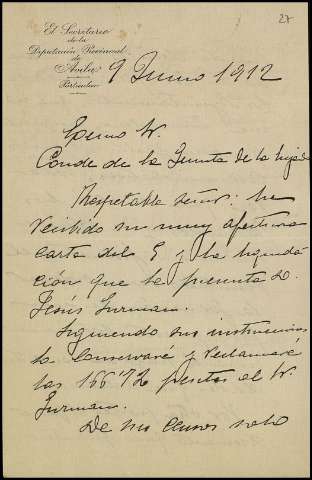 27
El Secretario
de la
Diputación Provincial
de
Avila
Particular
9 Junio 1912
Excmo Sr.
Conde de la Quinta de la Enjarada
Respetable señor: he
recibido su muy afectuosa
carta del 5 y la liquida
ción que le presenta D.
Jesús Guzman.
Siguiendo sus instrucciones
la conservaré y reclamaré
las 166'72 pesetas al Sr.
Guzman.
De sus